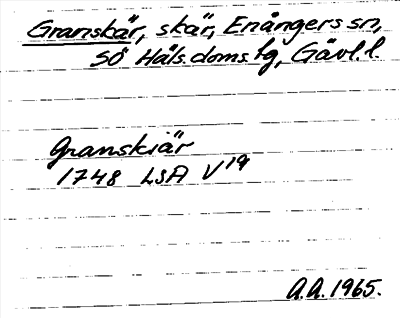 Granskär, skär, Enångers sn,
SÖ Häls. doms. tg, Gävl. l.
Granskiär
1748 LSA V 19
A.A. 1965.